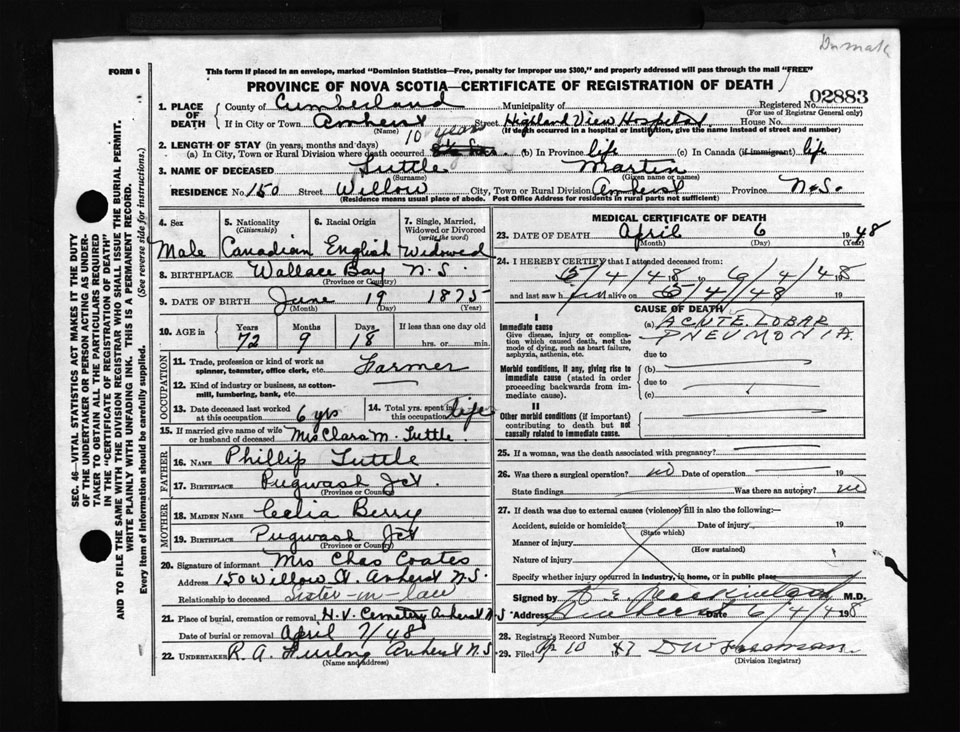 FORM 6
This form if placed in an envelope, marked "Dominion Statistics—Free, penalty for improper use $300," and properly addressed will pass through the mail "FREE"
PROVINCE OF NOVA SCOTIA—CERTIFICATE OF REGISTRATION OF DEATH
02883
1. PLACE OF DEATH County of Cumberland Municipality of Registered No. (For use of Registrar General only)
If in City or Town Amherst (Name) Street Highland View Hospital House No.
(If death occurred in a hospital or institution, give the name instead of street and number)
10 years
2. LENGTH OF STAY (in years, months and days)
(a) In City, Town or Rural Division where death occurred (b) In Province life (c) In Canada (if immigrant) life
3. NAME OF DECEASED Tuttle (Surname) Martin (Given name or names)
RESIDENCE No. 150 Street Willow City, Town or Rural Division Amherst Province N.S.
(Residence means usual place of abode. Post Office Address for residents in rural parts not sufficient)
4. Sex 5. Nationality (Citizenship) 6. Racial Origin 7. Single, Married, Widowed or Divorced (write the word)
Male Canadian English Widowed
8. BIRTHPLACE Wallace Bay N.S.
(Province or Country)
9. DATE OF BIRTH June 19 1875
(Month) (Day) (Year)
10. AGE in Years Months Days If less than one day old
72 9 18 hrs. or min.
OCCUPATION
11. Trade, profession or kind of work as spinner, teamster, office clerk, etc. Farmer
12. Kind of industry or business, as cotton-mill, lumbering, bank, etc.
13. Date deceased last worked at this occupation 6 yrs 14. Total yrs. spent in this occupation Life
15. If married give name of wife or husband of deceased Mrs Clara M. Tuttle.
FATHER
16. NAME Phillip Tuttle
17. BIRTHPLACE Pugwash Jct.
(Province or Country)
MOTHER
18. MAIDEN NAME Celia Berry
19. BIRTHPLACE Pugwash Jct
(Province or Country)
20. Signature of informant Mrs Chas Coates
Address 150 Willow St. Amherst N.S.
Relationship to deceased Sister-in-law
21. Place of burial, cremation or removal H.V. Cemetery Amherst N S
Date of burial or removal April 7/48
22. UNDERTAKER R. A. Furlong Amherst N.S
(Name and address)
MEDICAL CERTIFICATE OF DEATH
23. DATE OF DEATH April 6 1948
(Month) (Day) (Year)
24. I HEREBY CERTIFY that I attended deceased from:
5/4/48 to 6/4/48
and last saw him alive on 5/4/48 19
CAUSE OF DEATH
I
Immediate cause
Give disease, injury or complication which caused death, not the mode of dying, such as heart failure, asphyxia, asthenia, etc.
(a) ACUTE LOBAR
PNEUMONIA
due to
Morbid conditions, if any, giving rise to immediate cause (stated in order proceeding backwards from immediate cause).
(b)
due to
(c)
II
Other morbid conditions (if important) contributing to death but not causally related to immediate cause.
25. If a woman, was the death associated with pregnancy?
26. Was there a surgical operation? no Date of operation 19
State findings Was there an autopsy? no
27. If death was due to external causes (violence) fill in also the following:—
Accident, suicide or homicide? Date of injury 19
(State which)
Manner of injury
(How sustained)
Nature of injury
Specify whether injury occurred in industry, in home, or in public place
Signed by M.D.
Address Amherst Date 6/4/1948
28. Registrar's Record Number
29. Filed Ap 10 1947
(Division Registrar)
SEC. 46—VITAL STATISTICS ACT MAKES IT THE DUTY
OF THE UNDERTAKER OR PERSON ACTING AS UNDER-
TAKER TO OBTAIN ALL THE PARTICULARS REQUIRED
IN THE "CERTIFICATE OF REGISTRATION OF DEATH"
AND TO FILE THE SAME WITH THE DIVISION REGISTRAR WHO SHALL ISSUE THE BURIAL PERMIT.
WRITE PLAINLY WITH UNFADING INK. THIS IS A PERMANENT RECORD.
Every item of information should be carefully supplied. (See reverse side for instructions.)